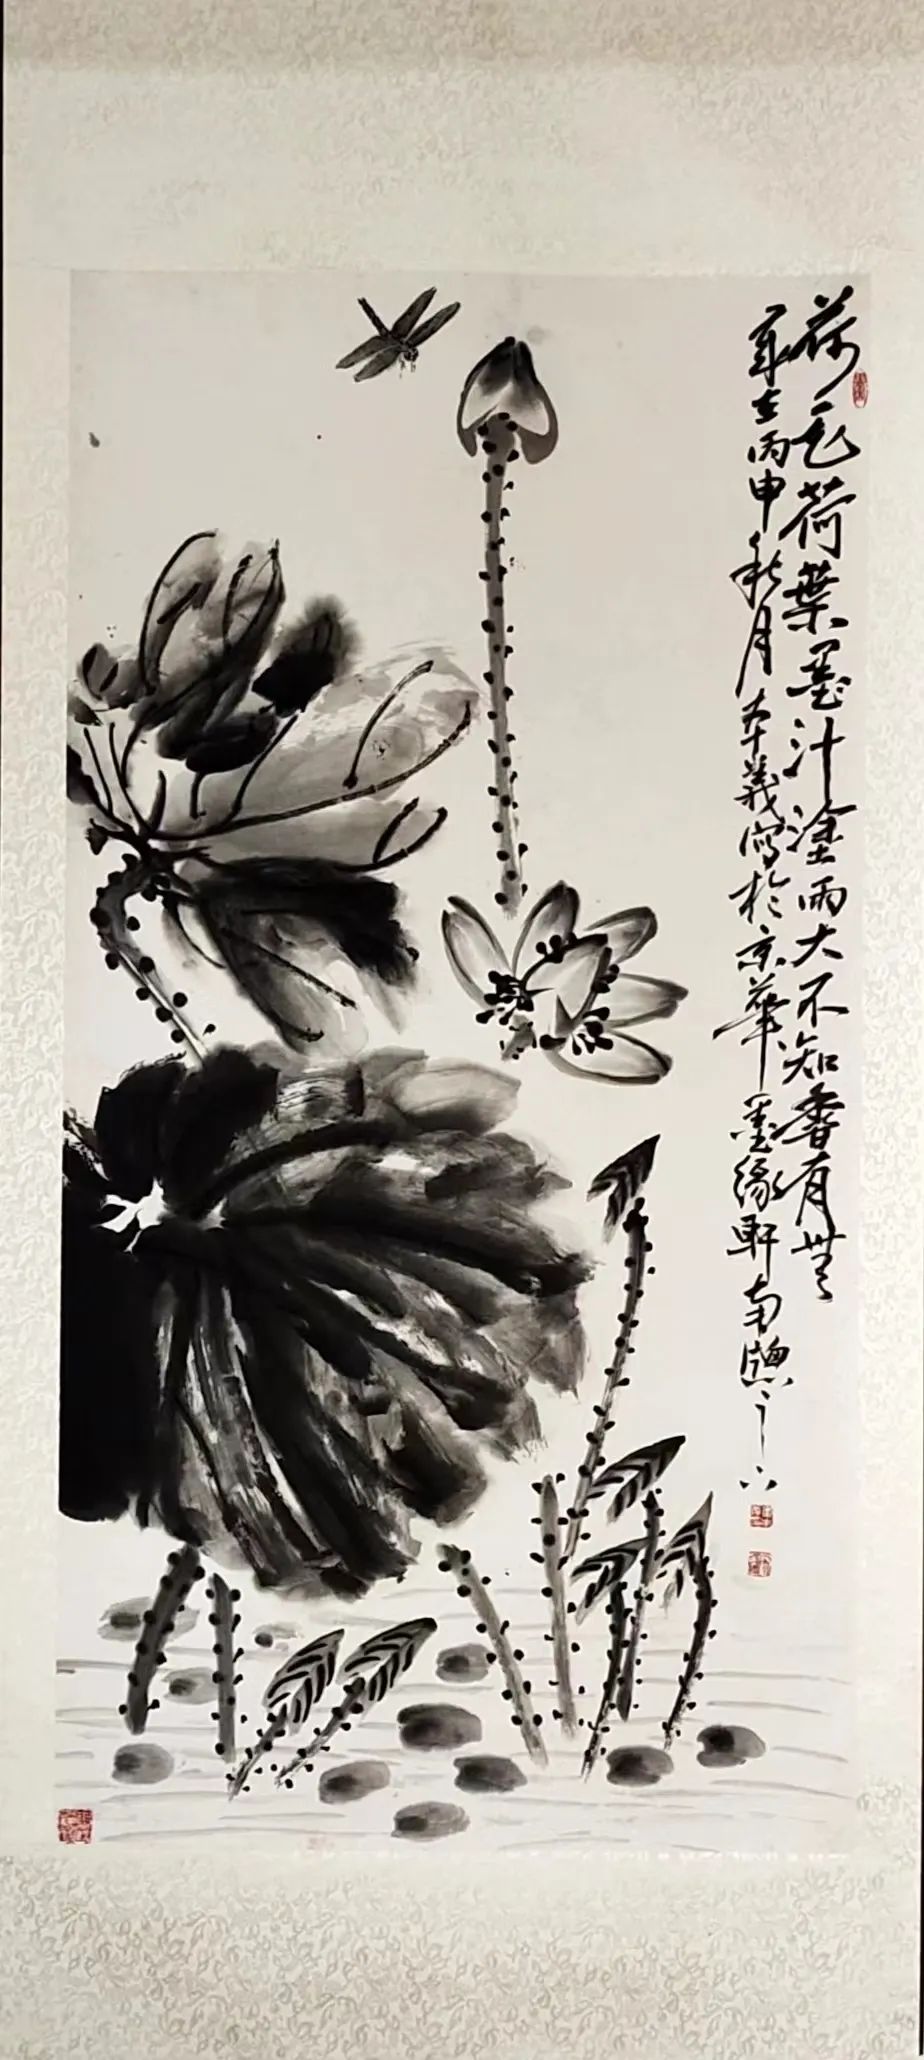 荷花荷葉墨汁塗雨大不知香有無
歲在丙申秋月本義寫於京華墨緣軒南窗之下